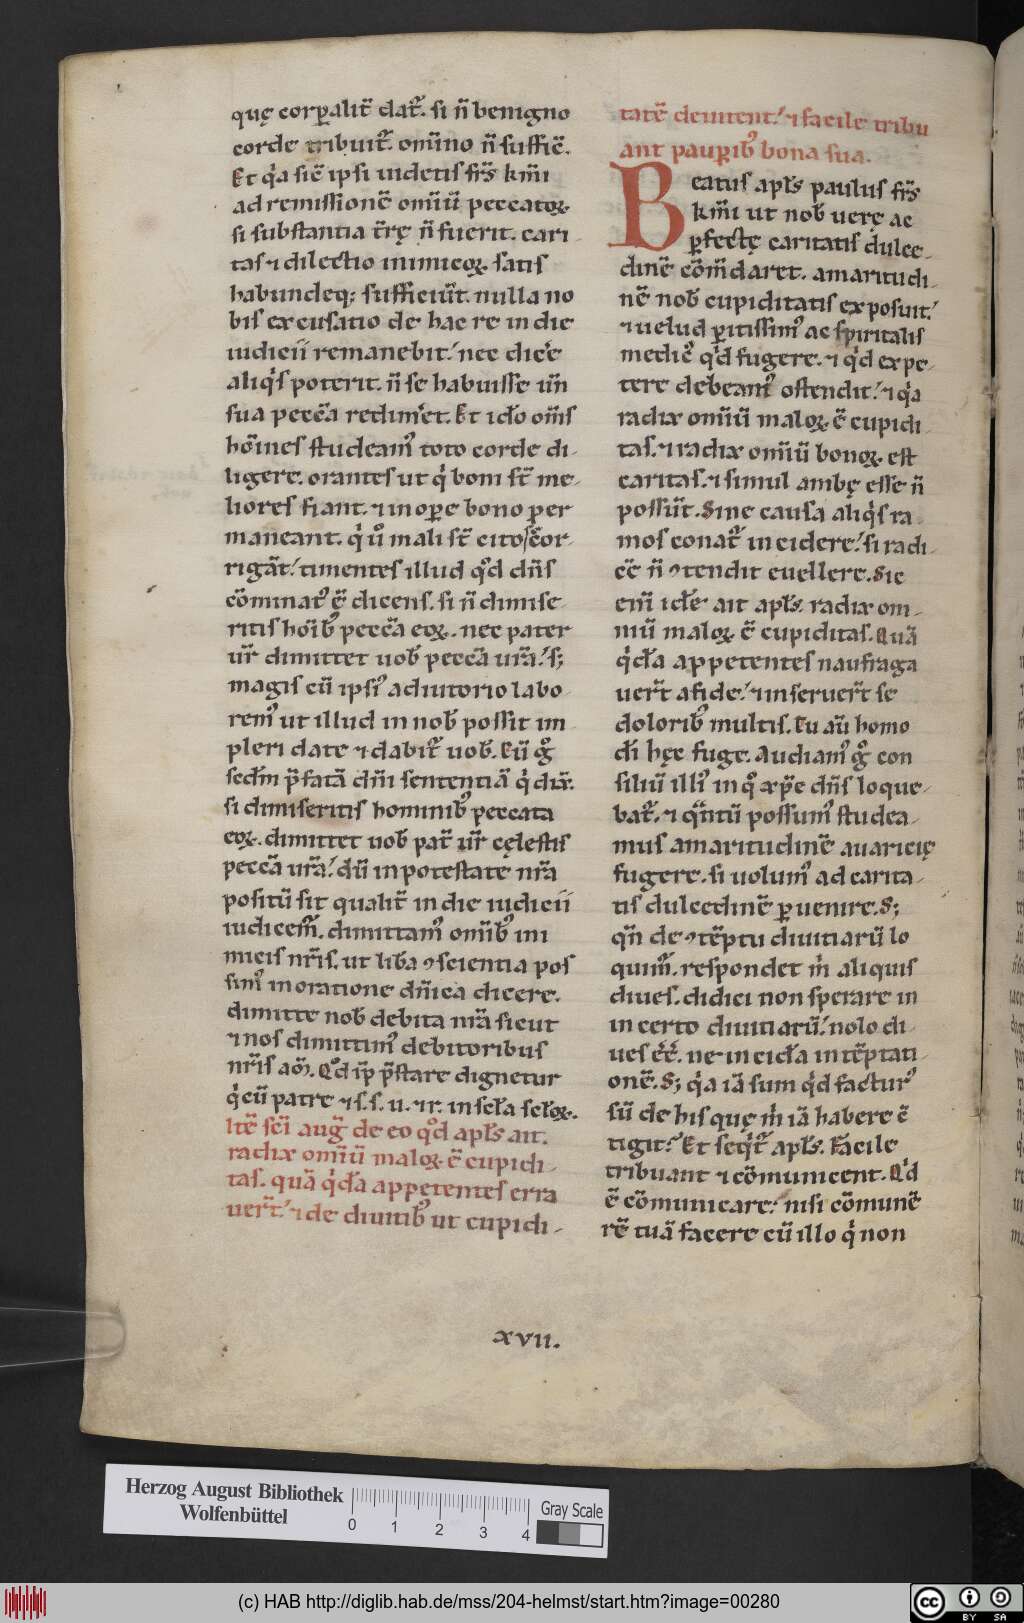 quę corꝑalit̄ dat᷑. si n̄ benigno
corde tribuit᷑. om̄ino n̄ suffic̄.
Et q̇a sic̄ ipsi uidetis fr̄s km̄i
ad remissionē om̄iū peccatoꝝ
si substantia t̄rę n̄ fuerit. cari-
tas ⁊ dilectio inimicoꝝ satis
habundeq; sufficiūt. nulla no
bis excusatio de hac re in die
iudicii remanebit.' nec dic̄e
aliq̇s poterit. n̄ se habuisse un̄
sua pecc̄a redim̄et. Et ido om̄s
hōines studeam᷒ toto corde di-
ligere. orantes ut q̇ boni st̄ me-
liores fiant. ⁊ in oꝑe bono ꝑper
maneant. q̇ ů mali st̄ cito se cor-
rigāt.' timentes illud qd̊ dn̄s
cōminat᷒ ę̄ dicens. si n̄ dimise-
ritis hoīb᷒ pecc̄a eoꝝ. nec pater
ur̄ dimittet uob̄ pecc̄a ur̄a.' s;
magis cū ipsi᷒ adiutorio labo-
rem᷒ ut illud in nob̄ possit im-
pleri date ⁊ dabit᷑ uob̄. Cū g̊
sed̄m p̄fatā dn̄i sententiā q̇ dix̄.
si dimiseritis hominib᷒ peccata
eoꝝ. dimittet uob̄ pat̄ ur̄ cęlestis
pecc̄a ur̄a.' dū in potestate nr̄a
positū sit qualit̄ in die iudicii
iudicem̄. dimittam᷒ om̄ib᷒ ini
micis nr̄is. ut lib̄a ꝯscientia pos
sim᷒ in oratione dn̄ica dicere.
dimitte nob̄ debita nr̄a sicut
⁊ nos dimittim᷒ debitoribus
nr̄is am̄. Qd̊ ip̄ p̄stare dignetur
q̇ cū patre ⁊ s. s. u. ⁊ r. in sc̄la sc̄loꝝ.
Itē sc̄i auḡ de eo qd̊ apl̄s ait.
radix om̄iū maloꝝ ē cupidi-
tas. quā q̇d̄a appetentes erra
uer̄t.' ⁊ de diuitib᷒ ut cupidi-
tatē deuitent.' ⁊ facile tribu
ant pauꝑib᷒ bona sua.
Beatus apl̄s paulus fr̄s
km̄i ut nob̄ uerę ac
ꝑfectę caritatis dulce-
dinē cōm̄daret. amaritudi-
nē nob̄ cupiditatis exposuit.'
⁊ uelud ꝑitissim᷒ ac spiritalis
medic᷒ qd̄ fugere. ⁊ qd̄ expe-
tere debeam᷒ ostendit.' ⁊ q̇a
radix om̄iū maloꝝ ē cupidi-
tas. ⁊ radix om̄iū bonoꝝ est
caritas. ⁊ simul ambę esse n̄
possūt. Sine causa aliq̇s ra-
mos conat᷑ incidere.' si radi-
cē n̄ ꝯtendit euellere. Sic
eni̅ id̄e ait apl̄s. radix om-
niū maloꝝ ē cupiditas. Quā
q̇d̄a appetentes naufraga
uer̄t a fide.' ⁊ inseruer̄t se
dolorib᷒ multis. Tu aū homo
dī hęc fuge. Audiam᷒ g̊ con
siliū illi᷒ in q̊ xp̄c dn̄s loque-
bat᷑. ⁊ qn̄tū possum᷒ studea-
mus amaritudinē auaricię
fugere. si uolum᷒ ad carita-
tis dulcedinē ꝑuenire. S;
qn̄ de ꝯtēptu diuitiarū lo
quim̄. respondet m̄ aliquis
diues. didici non sperare in
incerto diuitiarū.' nolo di-
ues ēē. ne incid̄a in tēptati-
onē. S; q̇a iā sum qd̄ factur᷒
sū de his quę m̄ iā habere ē
tigit? Et seq̇t᷑ apl̄s. Facile
tribuant ⁊ cōmunicent. Qd̄
ē cōmunicare.' nisi cōmunē
rē tuā facere cū illo q̇ non
xvii.
Herzog August Bibliothek
Wolfenbüttel
0 1 2 3 4
Gray Scale
(c) HAB http://diglib.hab.de/mss/204-helmst/start.htm?image=00280
cc BY SA